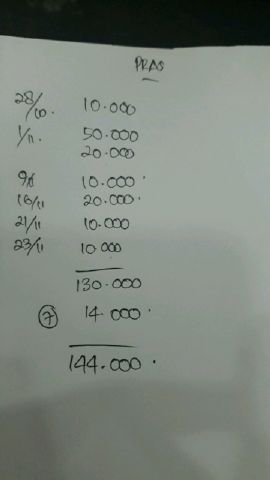 PRAS
28/10. 10.000
1/11. 50.000
20.000
9/11 10.000
16/11 20.000
21/11 10.000
23/11 10.000
130.000
7 14.000
144.000